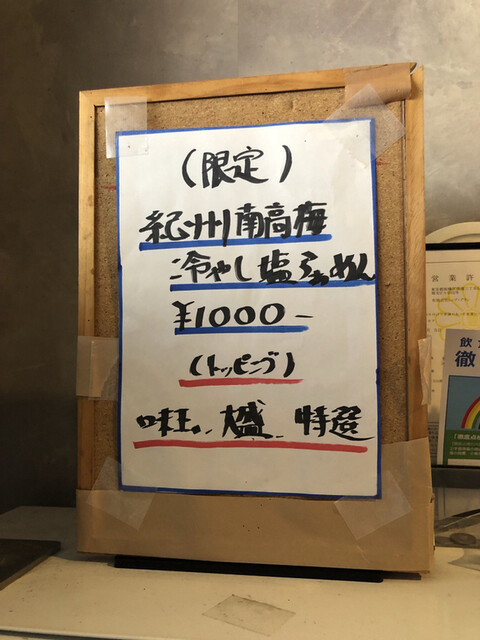 (限定)
紀州南高梅
冷やし塩らぁめん
¥1000-
(トッピング)
味玉、大盛、特選
営業許
飲
徹